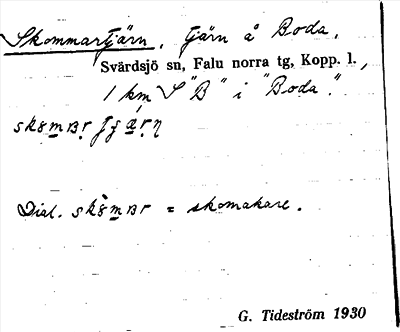 Skommartjärn, tjärn å Boda,
Svärdsjö sn, Falu norra tg, Kopp. l.,
1 km S "B" i "Boda".
Dial. = skomakare.
G. Tideström 1930